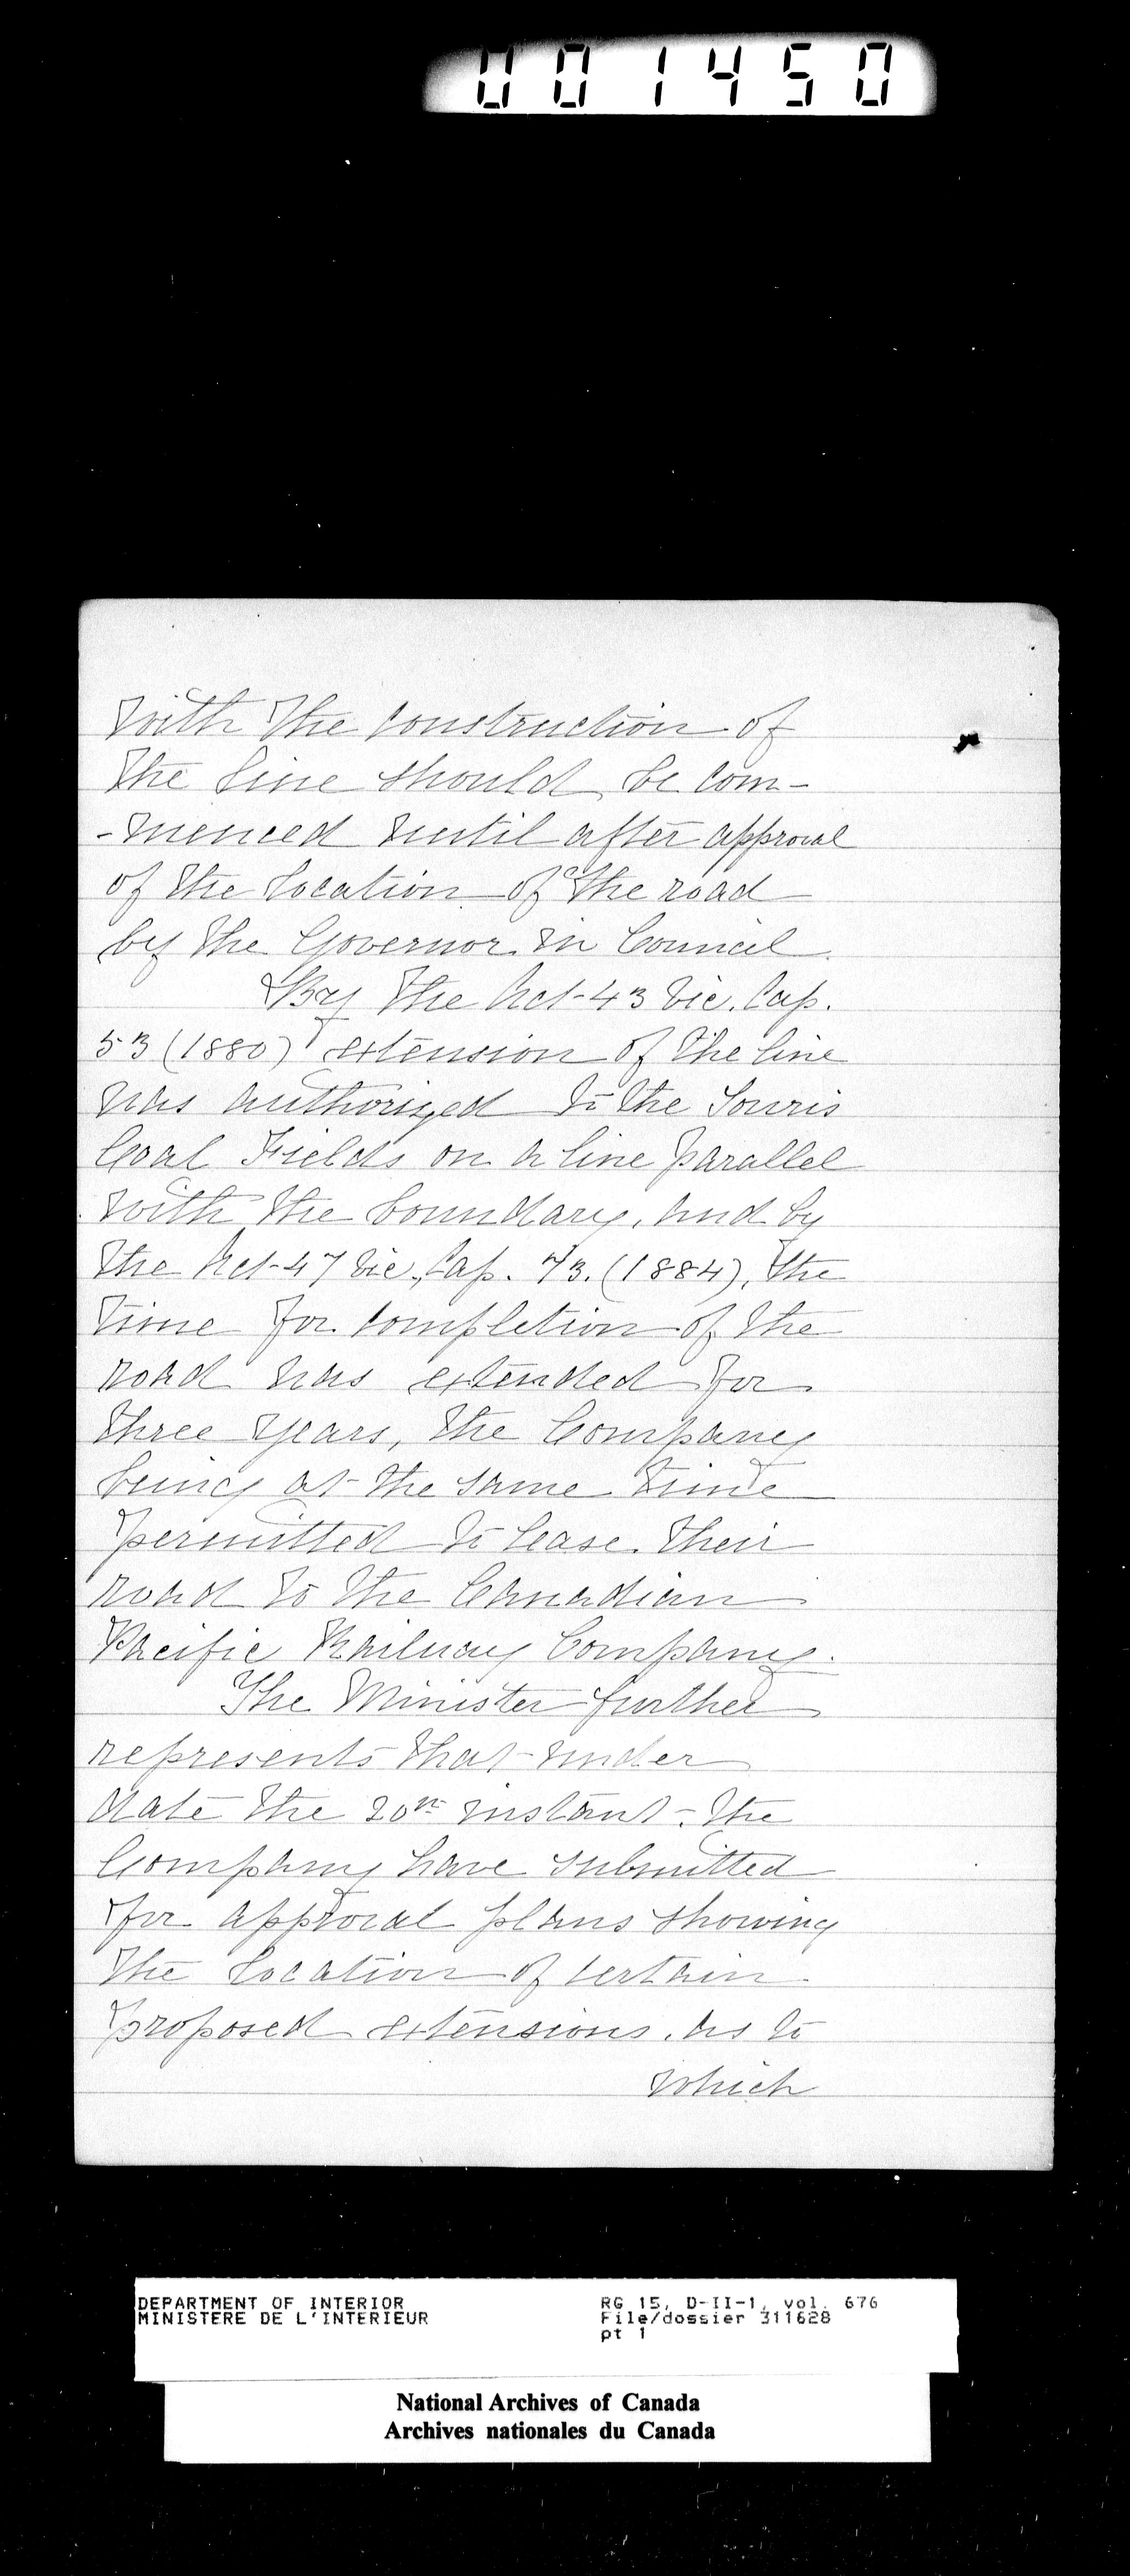 001450
with the construction of
the line should be com-
-menced until after approval
of the location of the road
by the Governor in Council.
By the Act 43 Vic. Cap.
53 (1880) extension of the line
was authorized to the Souris
Coal Fields on a line parallel
with the boundary, and by
the Act 47 Vic., Cap. 73. (1884), the
time for completion of the
road was extended for
three years, the Company
being at the same time
permitted to lease their
road to the Canadian
Pacific Railway Company.
The Minister further
represents that under
date the 20th instant, the
Company have submitted
for approval plans showing
the location of certain
proposed extensions, as to
which
DEPARTMENT OF INTERIOR
MINISTERE DE L'INTERIEUR
RG 15, D-II-1, vol. 676
File/dossier 311628
pt 1
National Archives of Canada
Archives nationales du Canada